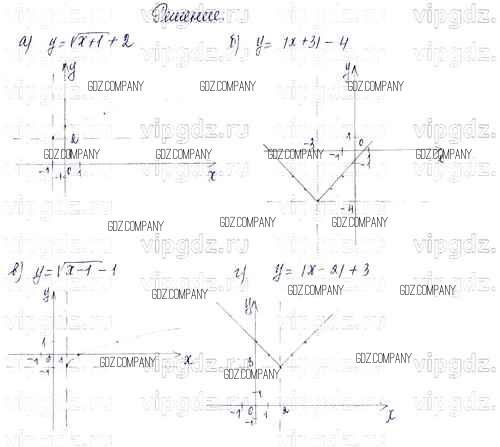 Решение.
а) y = √x+1 + 2
б) y = |x+3| - 4
y
2
-1 0 1
-1
x
y
-3
1
0
-1
1
-4
в) y = √x-1 - 1
г) y = |x-2| + 3
y
1
-1 0 1
-1
x
y
3
1
-1 0 1 2
-1
x
GDZ.COMPANY
vipgdz.ru